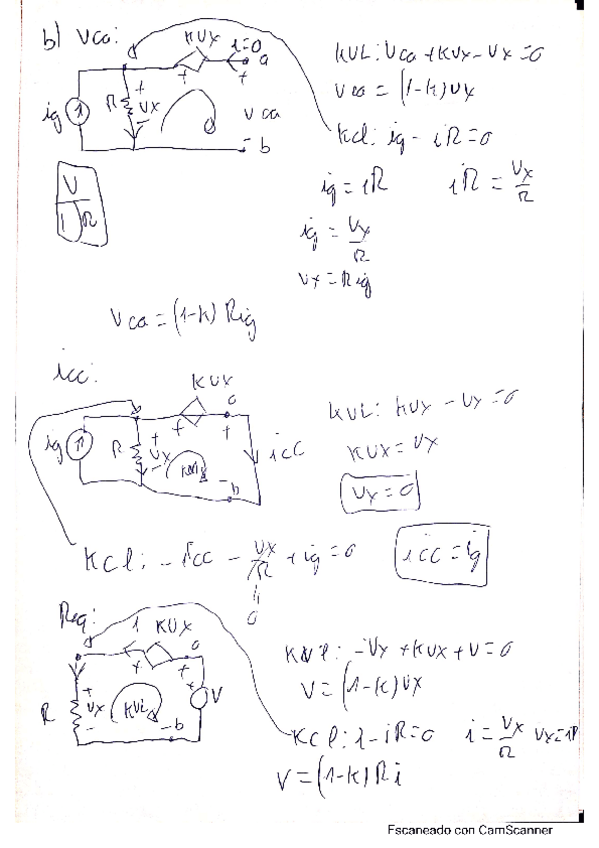 b) Vca:
KVX
i=0
a
+
+
ig
R
VX
-
Vca
- b
KVL: Vca + KVX - VX = 0
Vca = (1-K)VX
KCl: ig - iR = 0
ig = iR
iR = VX/R
ig = VX/R
VX = Rig
V
I R
Vca = (1-K) Rig
icc:
KVX
a
+
+
ig
R
VX
-
icc
- b
KVL: KVX - VX = 0
KVX = VX
VX = 0
KCl: - icc - VX/R + ig = 0
0
icc = ig
Req:
KVX
a
+
+
R
VX
-
KVL
V
- b
KVl: -VX + KVX + V = 0
V = (1-K)VX
KCl: i - iR = 0
i = VX/R
VX = iR
V = (1-K) R i
Escaneado con CamScanner